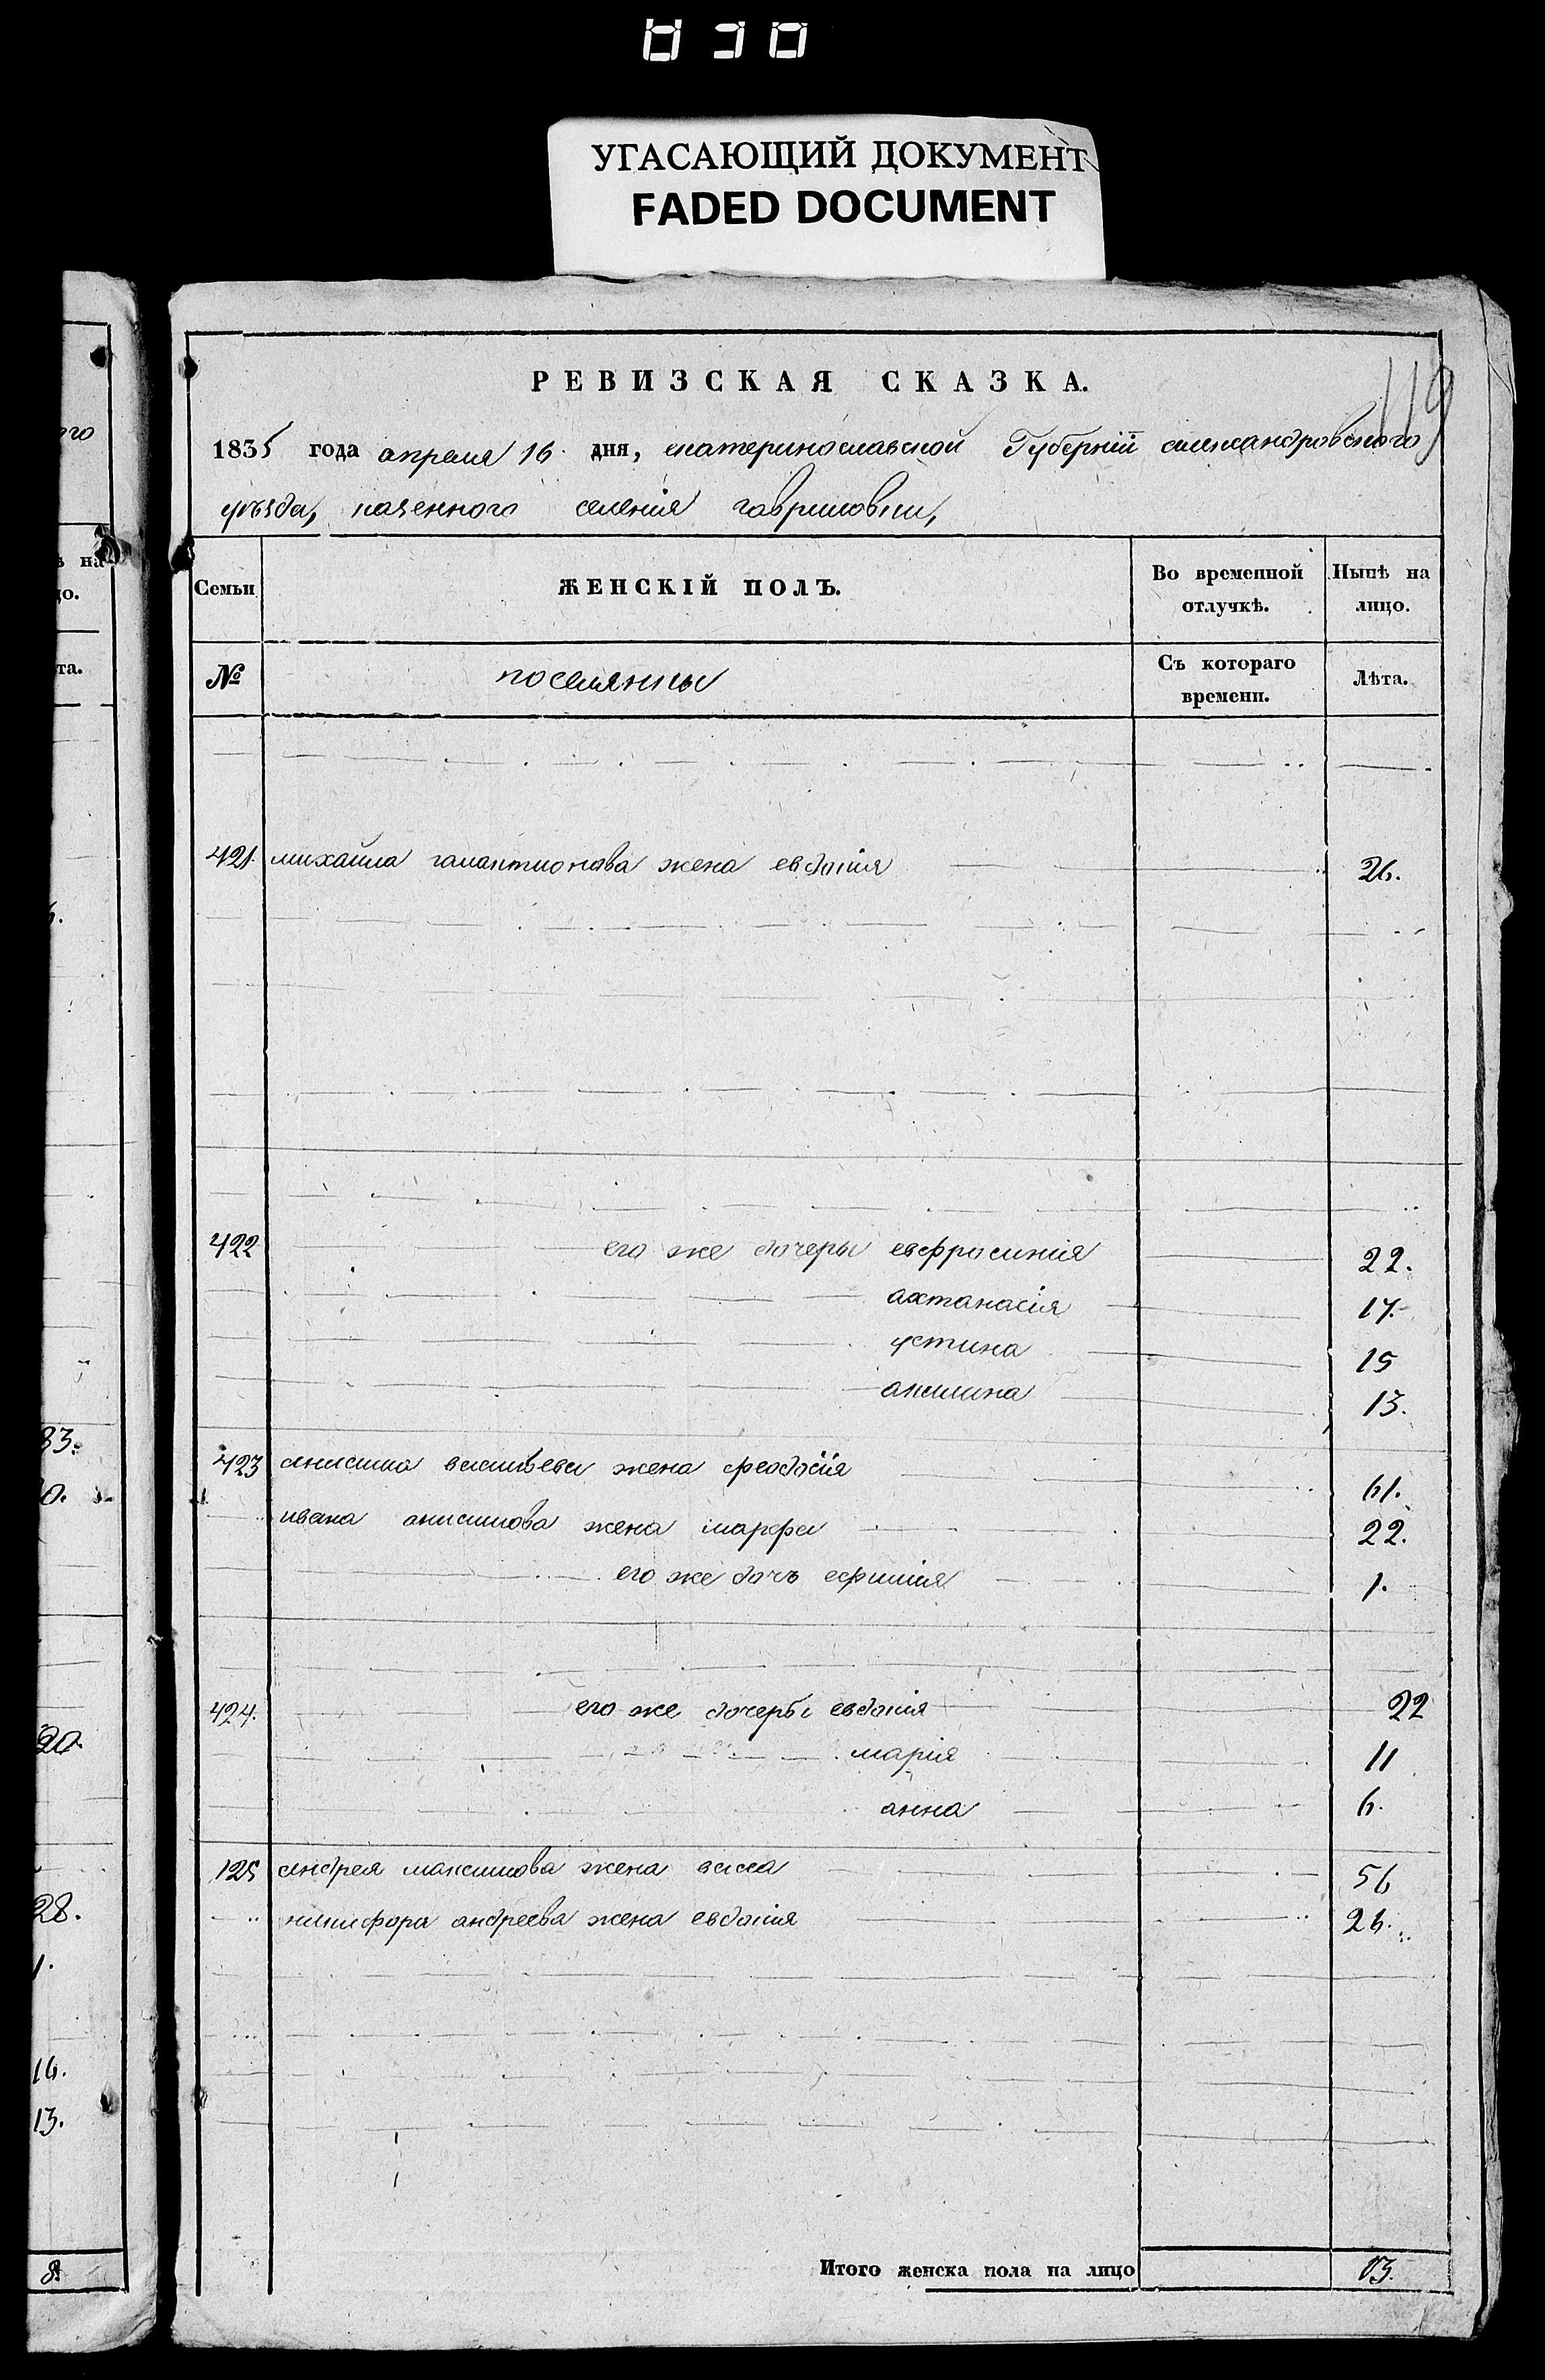 УГАСАЮЩИЙ ДОКУМЕНТ
FADED DOCUMENT
119
РЕВИЗСКАЯ СКАЗКА.
1835 года апреля 16. дня, екатеринославской Губерніи александровского
уѣзда, казенного селенія гавриловки,
Семьи ЖЕНСКІЙ ПОЛЪ. Во временной отлучкѣ. Нынѣ на лицо.
№ поселянки Съ котораго времени. Лѣта.
421. михайла галактионова жена евдокія 26.
422 его же дочеры евфросинія 22.
анастасія 17.
устина 15
акилина 13.
423 анисима васильева жена феодосія 61.
ивана анисимова жена марфа 22.
его же дочь ефимія 1.
424. его же дочеры евдокія 22
марія 11
анна 6.
125 андрея максимова жена васса 56
никифора андреева жена евдокія 26.
Итого женска пола на лицо 13.
ого
на
цо.
та.
33.
0.
20.
28.
1.
16.
13.
8.